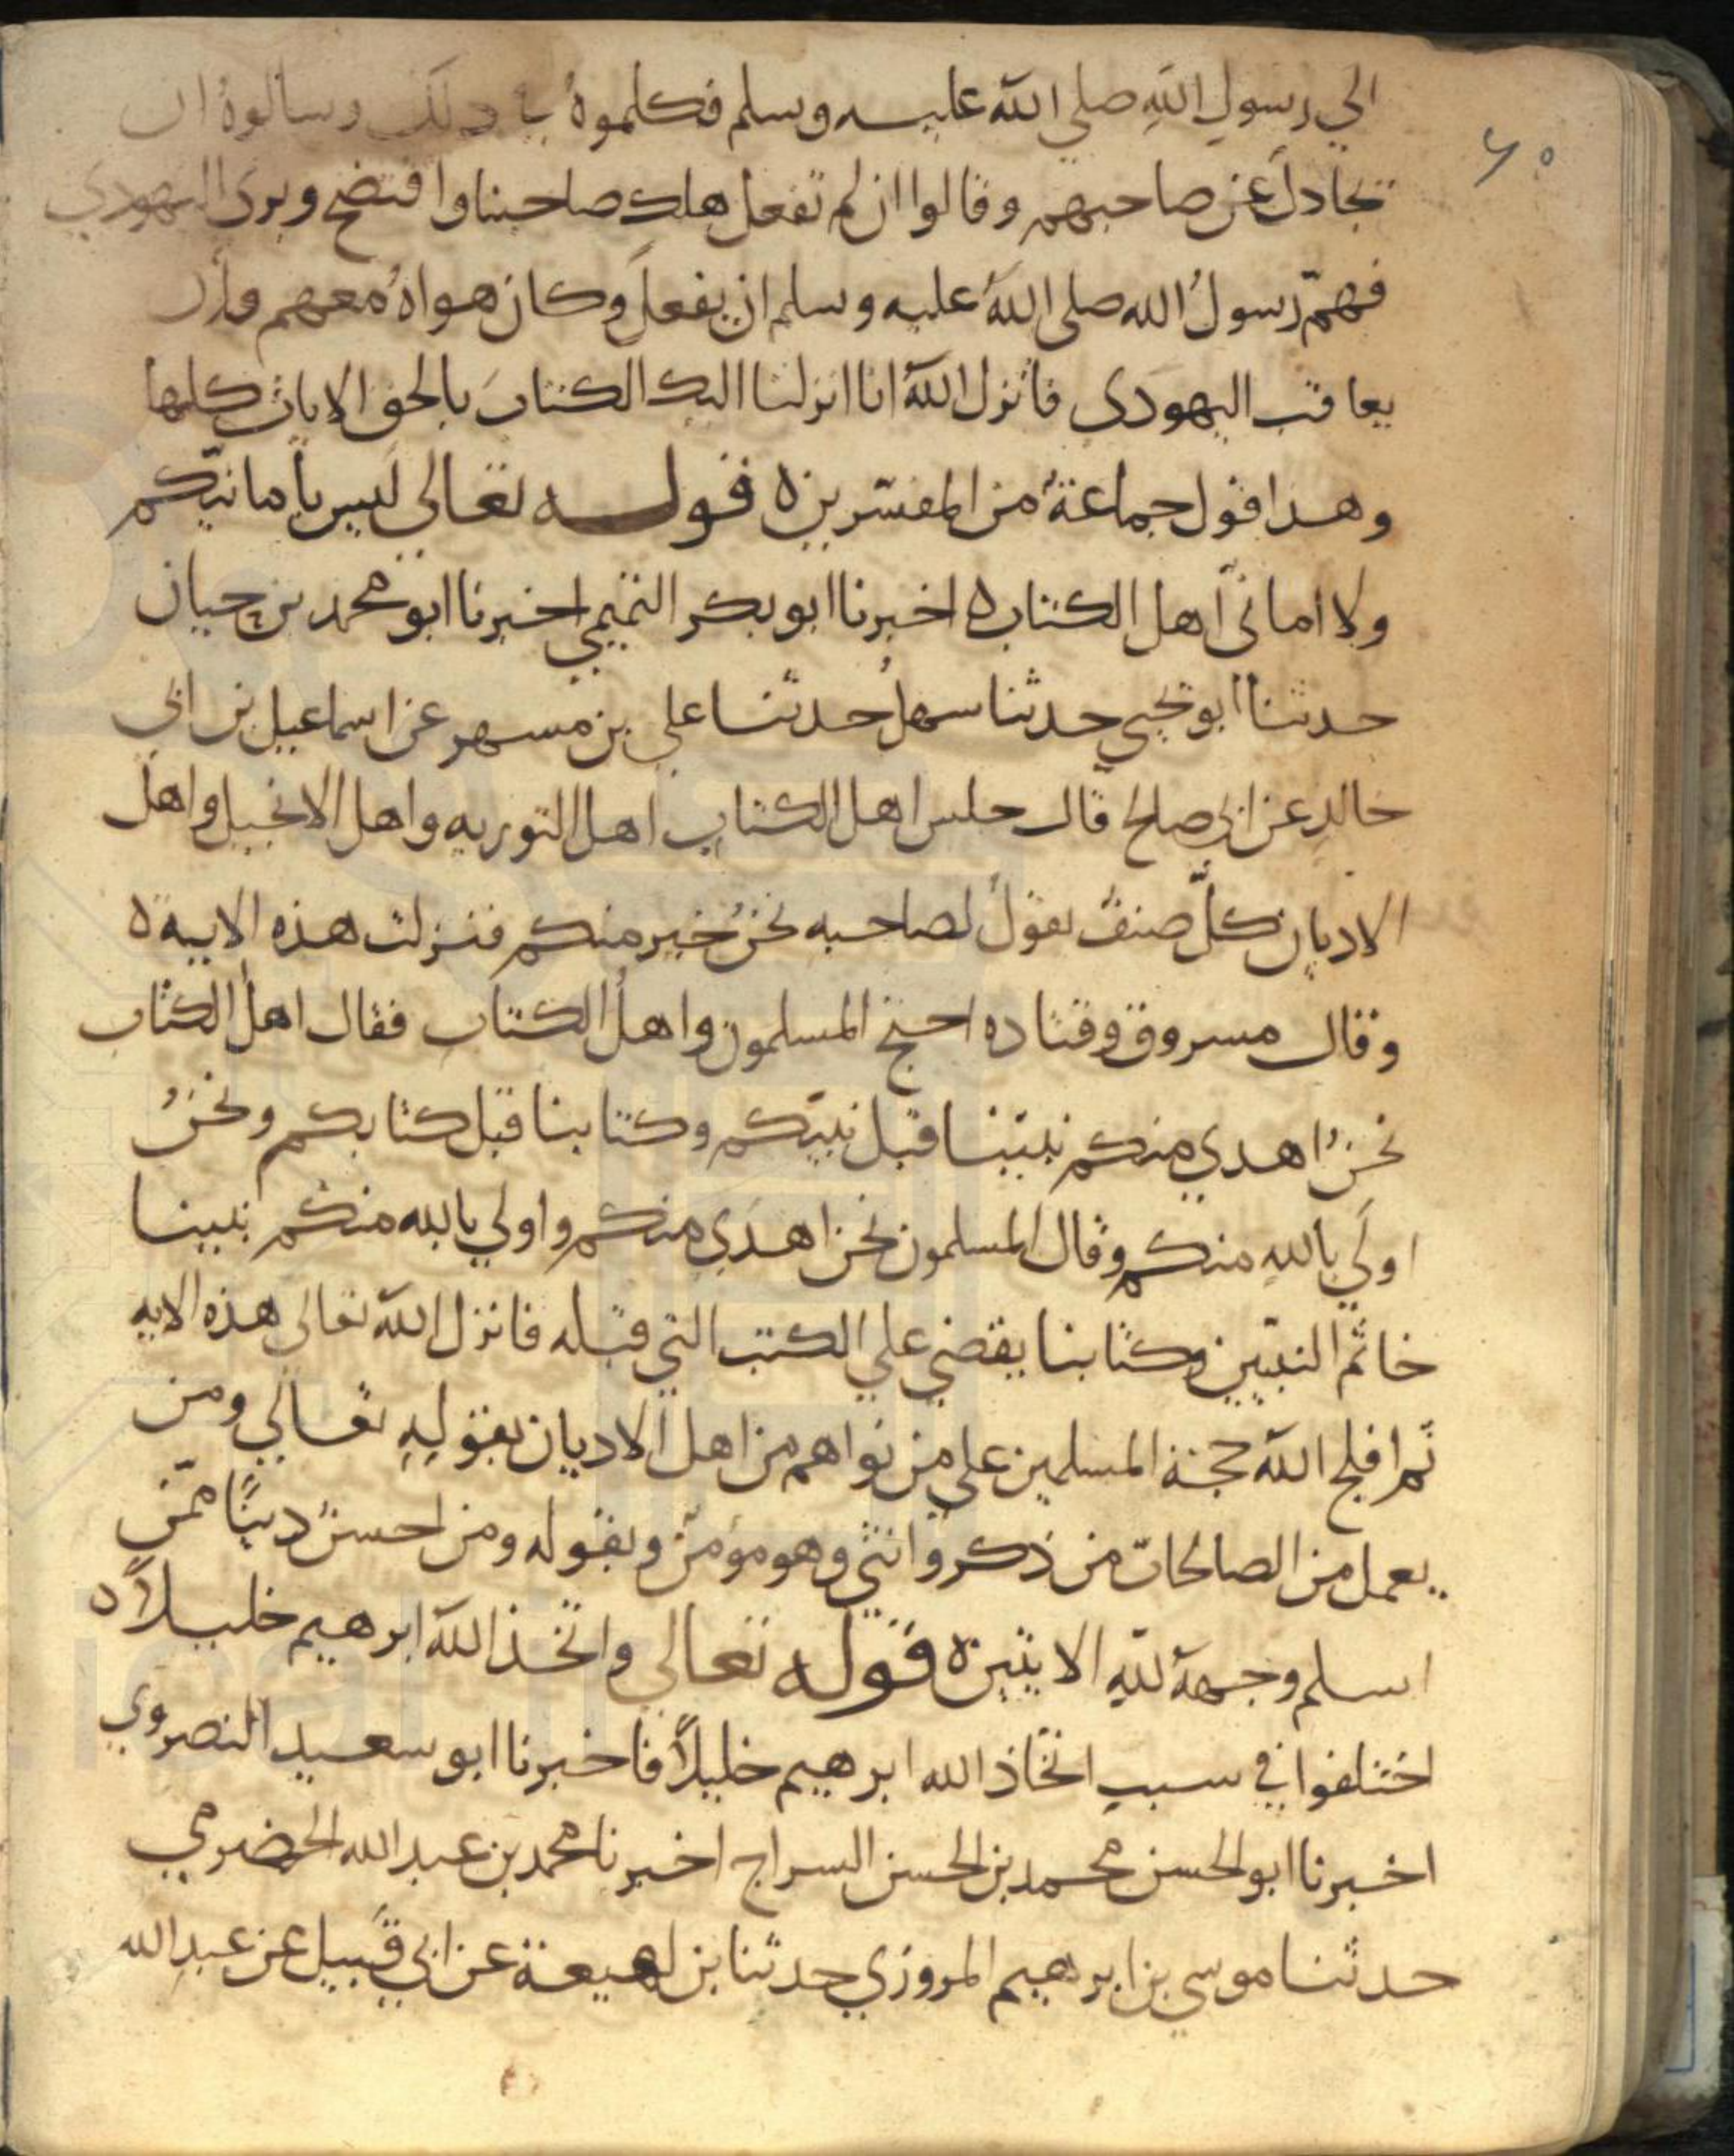 ٦٥
الي رسول الله صلى الله عليه وسلم فكلموهُ في ذلك وسالوهُ ان
تجادلَ عن صاحبهم وقالوا ان لم تفعل هلك صاحبنا وافتضح وبرى اليهودي
فهمّ رسولُ الله صلى اللهُ عليه وسلم ان يفعلَ وكان هواهُ معهم وان
يعاقب اليهودى فانزل اللهُ انا انزلنا اليك الكتابَ بالحق الايات كلها
وهذا قول جماعةٌ من المفسّرين ه قوله تعالى ليس بأمانيّكم
ولا امانىّ اهل الكتاب ه اخبرنا ابو بكر التميمي اخبرنا ابو محمد بن حيان
حدثنا ابو يحيي حدثنا سهلُ حدثنا علي بن مسهر عن اسماعيل بن ابى
خالدِ عن ابى صلح قال جلس اهل الكتاب اهل التوريه واهل الانجيل واهل
الاديان كلّ صنفٌ يقولُ لصاحبه نحنُ خير منكم فنزلت هذه الايه ه
وقال مسروق وقتاده احتج المسلمون واهلُ الكتاب فقال اهلُ الكتاب
نحنُ اهدي منكم نبيّنا قبل نبيّكم وكتابنا قبل كتابكم ونحنُ
اولَي بالله منكم وقال المسلمون نحن اهدَي منكم واولي بالله منكم نبينا
خاتم النبيّين وكتابنا يقضي علي الكتب التي قبله فانزل اللهُ تعالى هذه الايه
ثم افلج اللهُ حجة المسلمين علي من نواهم من اهل الاديان بقولِهِ تعالي ومن
يعمل من الصالحات من ذكر وانثي وهو مؤمن وبقوله ومن احسنُ دينًا ممّن
اسلم وجههُ للّهِ الايتين ه قوله تعالى واتخذ اللهُ ابرهيم خليلاً ه
اختلفوا في سببِ اتخاذ الله ابرهيم خليلاً فاخبرنا ابو سعيد النصروي
اخبرنا ابو الحسن محمد بن الحسن السراج اخبرنا محمد بن عبد الله الحضرمي
حدثنا موسي بن ابرهيم المروزي حدثنا بن لهيعة عن ابي قَبيل عن عبدِ الله